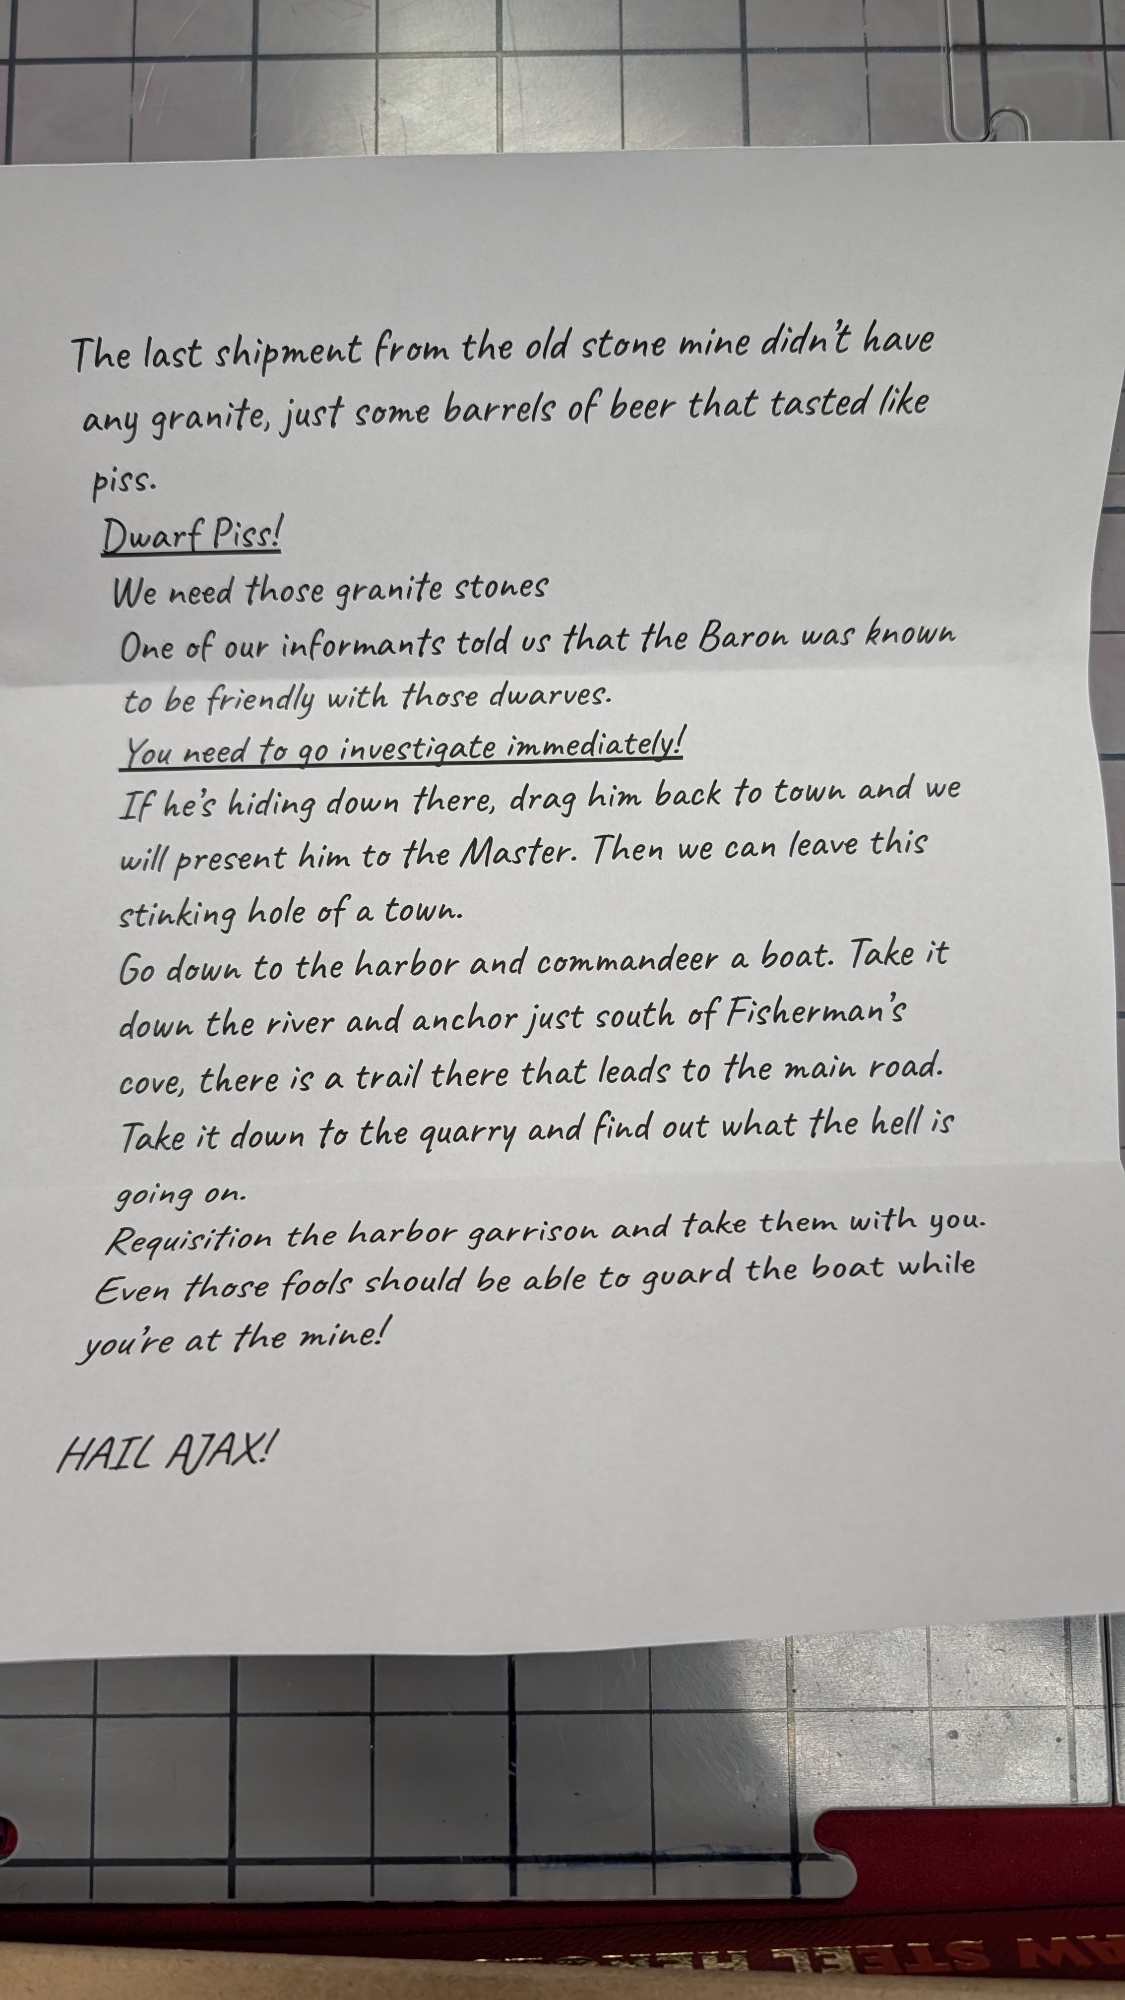 The last shipment from the old stone mine didn't have
any granite, just some barrels of beer that tasted like
piss.
Dwarf Piss!
We need those granite stones
One of our informants told us that the Baron was known
to be friendly with those dwarves.
You need to go investigate immediately!
If he's hiding down there, drag him back to town and we
will present him to the Master. Then we can leave this
stinking hole of a town.
Go down to the harbor and commandeer a boat. Take it
down the river and anchor just south of Fisherman's
cove, there is a trail there that leads to the main road.
Take it down to the quarry and find out what the hell is
going on.
Requisition the harbor garrison and take them with you.
Even those fools should be able to guard the boat while
you're at the mine!
HAIL AJAX!
STEEL